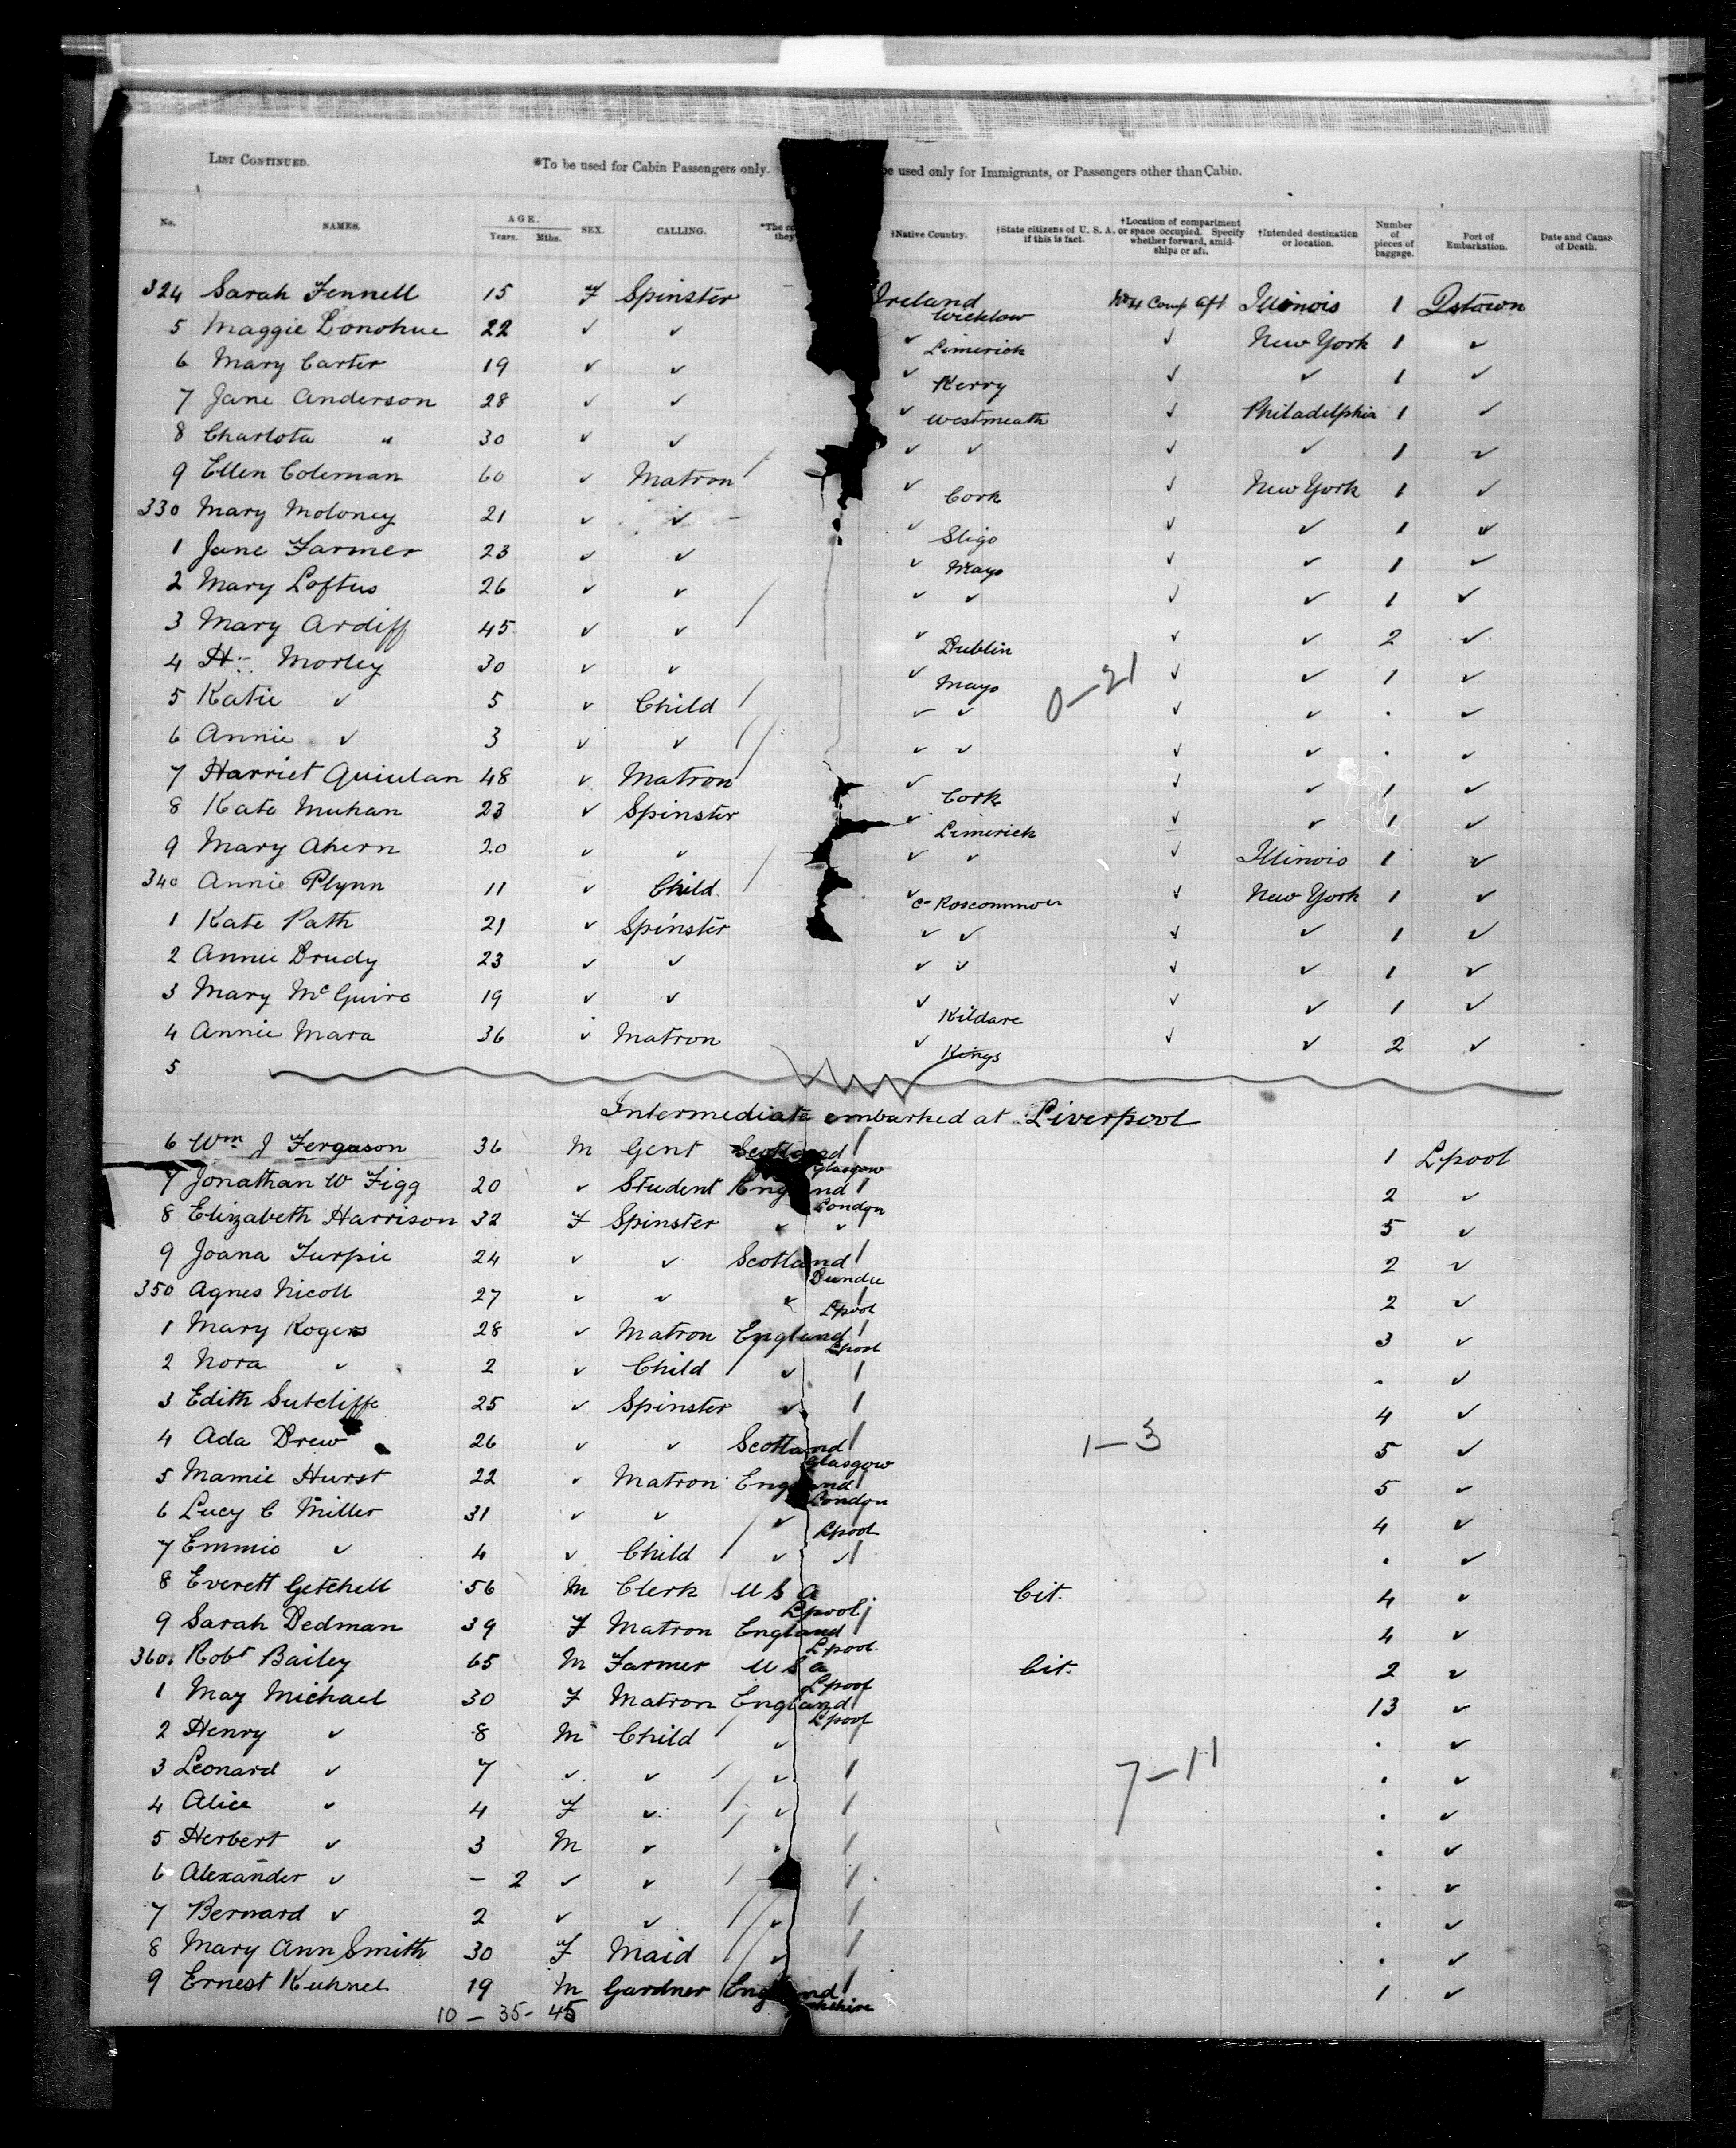 LIST CONTINUED. *To be used for Cabin Passengers only. be used only for Immigrants, or Passengers other than Cabin.
No. NAMES. AGE. Years. Mths. SEX. CALLING. *The co they †Native Country. †State citizens of U. S. A. if this is fact. †Location of compartment or space occupied. Specify whether forward, amidships or aft. †Intended destination or location. Number of pieces of baggage. Port of Embarkation. Date and Cause of Death.
324 Sarah Fennell 15 F Spinster Ireland Wicklow No 4 Comp Aft Illinois 1 Qstown
5 Maggie Donohue 22 ✓ ✓ ✓ Limerick ✓ New York 1 ✓
6 Mary Carter 19 ✓ ✓ ✓ Kerry ✓ ✓ 1 ✓
7 Jane Anderson 28 ✓ ✓ ✓ Westmeath ✓ Philadelphia 1 ✓
8 Charlota " 30 ✓ ✓ ✓ ✓ ✓ ✓ 1 ✓
9 Ellen Coleman 60 ✓ Matron / ✓ Cork ✓ New York 1 ✓
330 Mary Moloney 21 ✓ ✓ ✓ Sligo ✓ ✓ 1 ✓
1 Jane Farmer 23 ✓ ✓ ✓ Mayo ✓ ✓ 1 ✓
2 Mary Loftus 26 ✓ ✓ ✓ ✓ ✓ ✓ 1 ✓
3 Mary Ardiff 45 ✓ ✓ / ✓ Dublin ✓ ✓ 2 ✓
4 H Morley 30 ✓ ✓ ✓ Mayo ✓ ✓ 1 ✓
5 Katie ✓ 5 ✓ Child / ✓ ✓ 0-21 ✓ ✓ . ✓
6 Annie ✓ 3 ✓ ✓ / ✓ ✓ ✓ ✓ . ✓
7 Harriet Quinlan 48 ✓ Matron / ✓ Cork ✓ ✓ 1 ✓
8 Kate Muhan 23 ✓ Spinster ✓ Limerick ✓ ✓ 1 ✓
9 Mary Ahern 20 ✓ ✓ ✓ ✓ ✓ Illinois 1 ✓
340 Annie Plynn 11 ✓ Child / ✓ Co Roscommon ✓ New York 1 ✓
1 Kate Path 21 ✓ Spinster ✓ ✓ ✓ ✓ 1 ✓
2 Annie Drudy 23 ✓ ✓ ✓ ✓ ✓ ✓ 1 ✓
3 Mary McGuire 19 ✓ ✓ ✓ Kildare ✓ ✓ 1 ✓
4 Annie Mara 36 ✓ Matron ✓ Kings ✓ ✓ 2 ✓
5
Intermediate embarked at Liverpool
6 Wm J Ferguson 36 M Gent Scotland / Glasgow 1 Lpool
7 Jonathan W Figg 20 ✓ Student England / London 2 ✓
8 Elizabeth Harrison 32 F Spinster ✓ ✓ 5 ✓
9 Joana Turpie 24 ✓ ✓ Scotland / Dundee 2 ✓
350 Agnes Nicoll 27 ✓ ✓ ✓ / Lpool 2 ✓
1 Mary Rogers 28 ✓ Matron England / Lpool 3 ✓
2 Nora ✓ 2 ✓ Child / ✓ / . ✓
3 Edith Sutcliffe 25 ✓ Spinster ✓ / 4 ✓
4 Ada Drew 26 ✓ ✓ Scotland / Glasgow 1-3 5 ✓
5 Mamie Hurst 22 ✓ Matron England London 5 ✓
6 Lucy C Miller 31 ✓ ✓ / ✓ Lpool 4 ✓
7 Emmie ✓ 4 ✓ Child / ✓ ✓ / . ✓
8 Everett Getchell 56 M Clerk U S A Lpool Cit. 4 ✓
9 Sarah Dedman 39 F Matron England Lpool 4 ✓
360 Robt Bailey 65 M Farmer U S A Lpool Cit. 2 ✓
1 May Michael 30 F Matron England / Lpool 13 ✓
2 Henry ✓ 8 M Child / ✓ . ✓
3 Leonard ✓ 7 ✓ ✓ / ✓ / 7-11 . ✓
4 Alice ✓ 4 F ✓ / ✓ / . ✓
5 Herbert ✓ 3 M ✓ / . ✓
6 Alexander ✓ - 2 ✓ ✓ / / . ✓
7 Bernard ✓ 2 ✓ ✓ / ✓ / . ✓
8 Mary Ann Smith 30 F Maid / ✓ / . ✓
9 Ernest Kuhnel 19 M Gardner England / 1 ✓
10 - 35 - 45